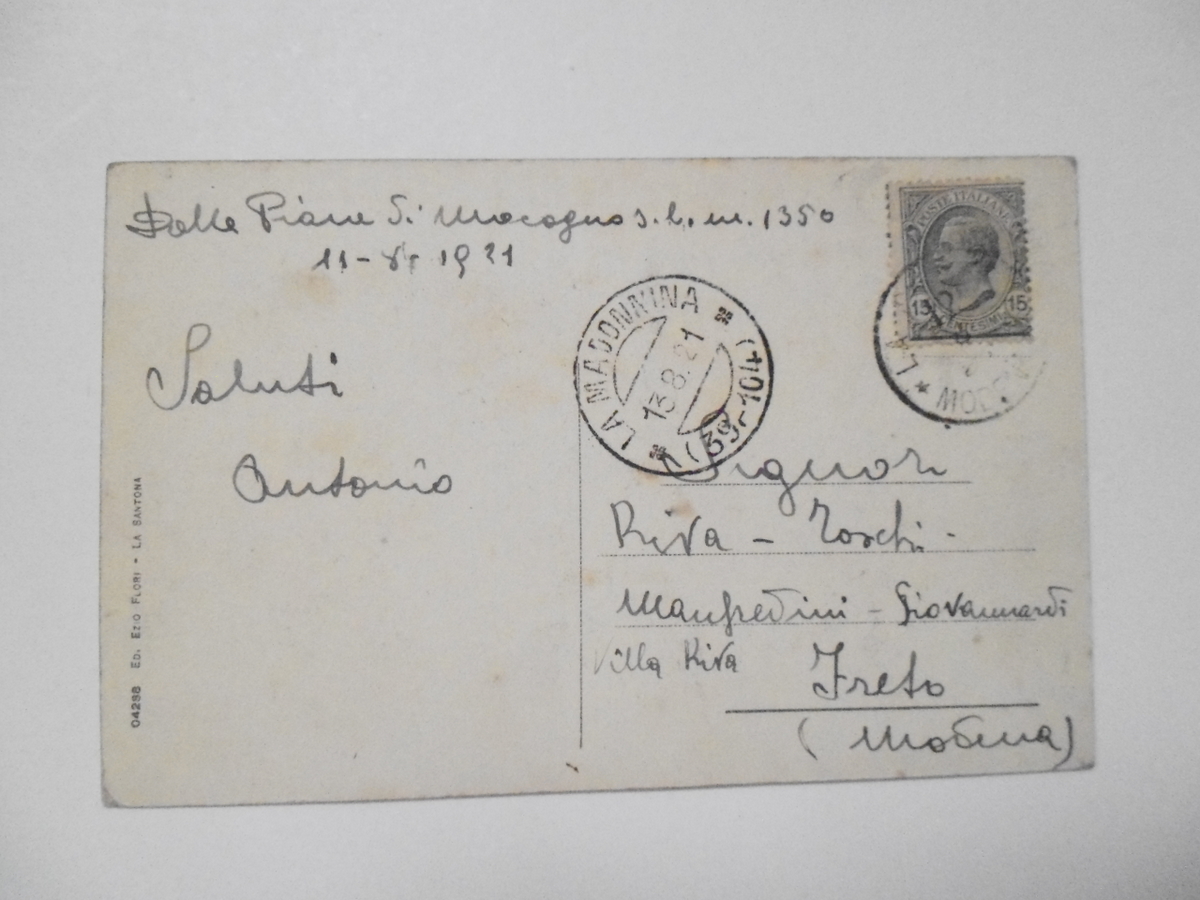 Dalle Piane di Mocogno s. l. m. 1350
11 - 8 1921
Saluti
Antonio
04288 ED. EZIO FLORI - LA SANTONA
POSTE ITALIANE
15 15
CENTESIMI
LA MADONNINA
13.8.21
(39-104)
MODENA
Signori
Riva - Toschi -
Manfredini - Giovannardi
Villa Riva Freto
(Modena)